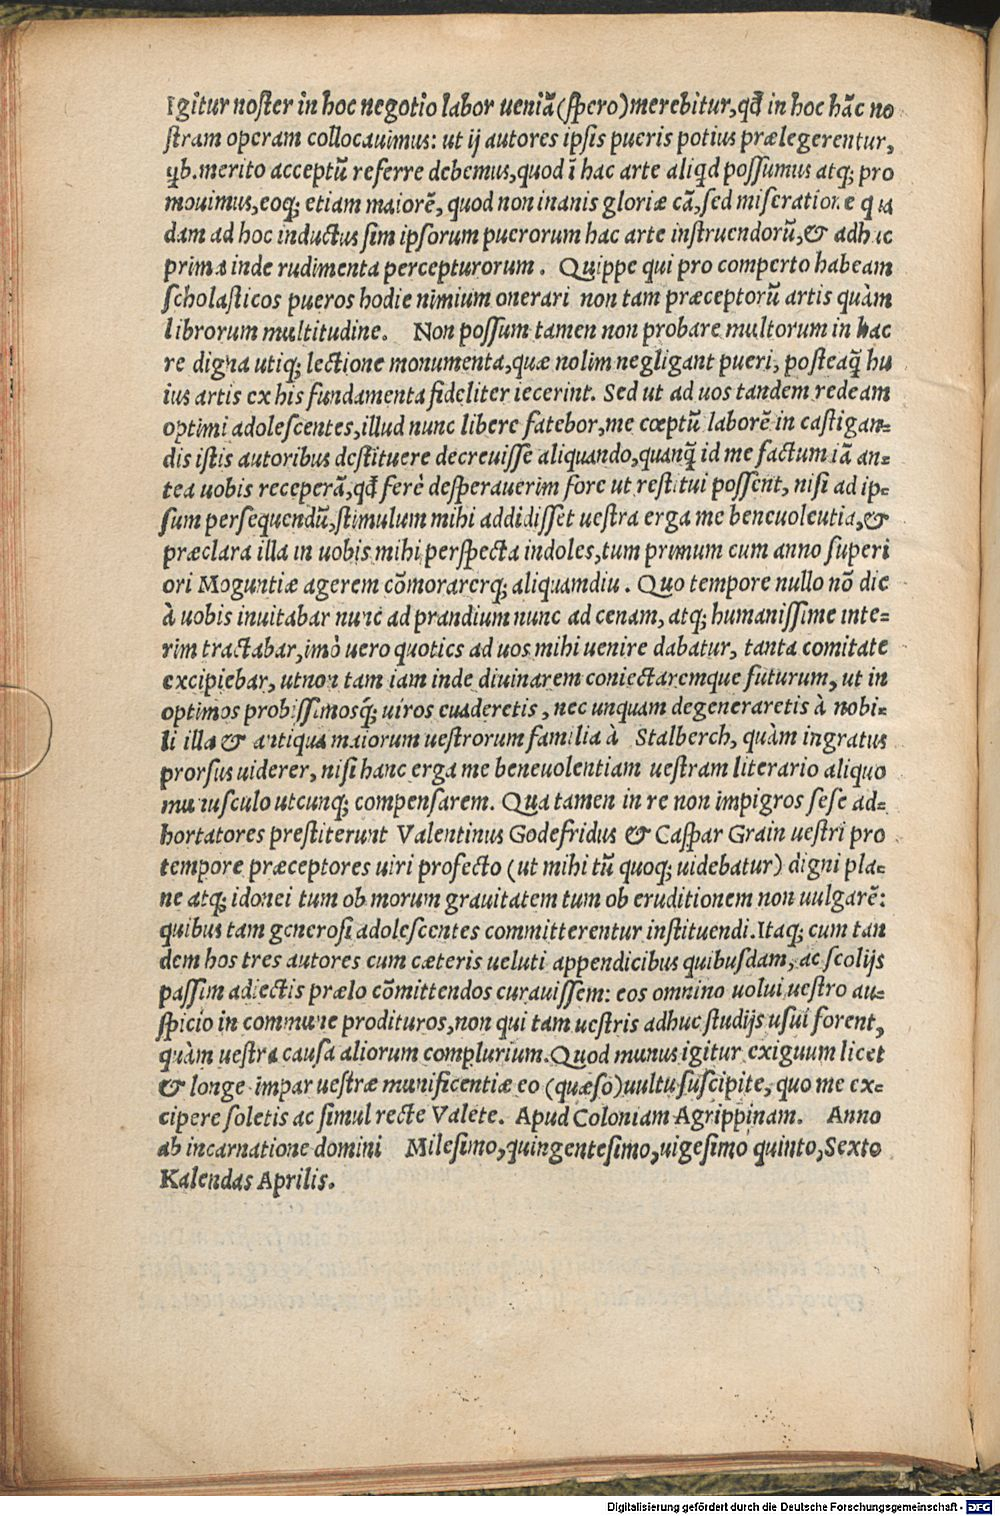 Igitur noster in hoc negotio labor ueniā (spero) merebitur, qđ in hoc hāc no
stram operam collocauimus: ut ij autores ipsis pueris potius prælegerentur,
qb. merito acceptū referre debemus, quod ī hac arte aliqd possumus atq; pro
mouimus, eoq; etiam maiorē, quod non inanis gloriæ cā, sed miseratione q ia
dam ad hoc inductus sim ipsorum puerorum hac arte instruendorū, & adhuc
prima inde rudimenta percepturorum. Quippe qui pro comperto habeam
scholasticos pueros hodie nimium onerari non tam præceptorū artis quàm
librorum multitudine. Non possum tamen non probare multorum in hac
re digna utiq; lectione monumenta, quæ nolim negligant pueri, posteaq̃ hu
ius artis ex his fundamenta fideliter iecerint. Sed ut ad uos tandem redeam
optimi adolescentes, illud nunc libere fatebor, me cœptū laborē in castigan=
dis istis autoribus destituere decreuisse aliquando, quanq̃ id me factum iā an=
tea uobis receperā, qđ ferè desperauerim fore ut restitui possent, nisi ad ip=
sum persequendū, stimulum mihi addidisset uestra erga me beneuoleutia, &
præclara illa in uobis mihi perspecta indoles, tum primum cum anno superi
ori Moguntiæ agerem cōmorarerq; aliquamdiu. Quo tempore nullo nō die
à uobis inuitabar nunc ad prandium nunc ad cenam, atq; humanissime inte=
rim tractabar, imò uero quoties ad uos mihi uenire dabatur, tanta comitate
excipiebar, utnon tam iam inde diuinarem coniectaremque futurum, ut in
optimos probissimosq̃; uiros euaderetis, nec unquam degeneraretis à nobi=
li illa & antiqua maiorum uestrorum familia à Stalberch, quàm ingratus
prorsus uiderer, nisi hanc erga me beneuolentiam uestram literario aliquo
munusculo utcunq; compensarem. Qua tamen in re non impigros sese ad=
hortatores prestiterunt Valentinus Godefridus & Caspar Grain uestri pro
tempore præceptores uiri profecto (ut mihi tū quoq; uidebatur) digni pla=
ne atq; idonei tum ob morum grauitatem tum ob eruditionem non uulgarē:
quibus tam generosi adolescentes committerentur instituendi. Itaq; cum tan
dem hos tres autores cum cæteris ueluti appendicibus quibusdam, ac scolijs
passim adiectis prælo cōmittendos curauissem: eos omnino uolui uestro au=
spicio in commune prodituros, non qui tam uestris adhuc studijs usui forent,
quàm uestra causa aliorum complurium. Quod munus igitur exiguum licet
& longe impar uestræ munificentiæ eo (quæso) uultu suscipite, quo me ex=
cipere soletis ac simul recte Valete. Apud Coloniam Agrippinam. Anno
ab incarnatione domini Milesimo, quingentesimo, uigesimo quinto, Sexto
Kalendas Aprilis.
Digitalisierung gefördert durch die Deutsche Forschungsgemeinschaft - DFG